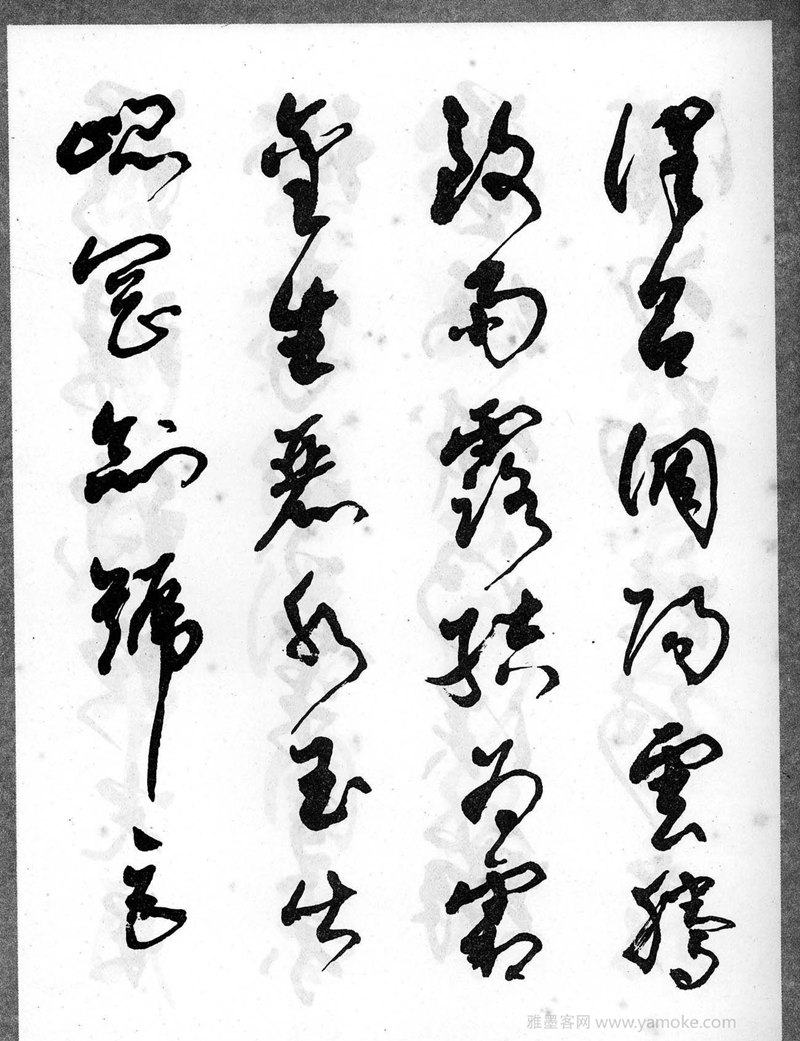 律呂調陽雲騰
致雨露結為霜
金生麗水玉出
崐岡劍號巨
雅墨客网 www.yamoke.com